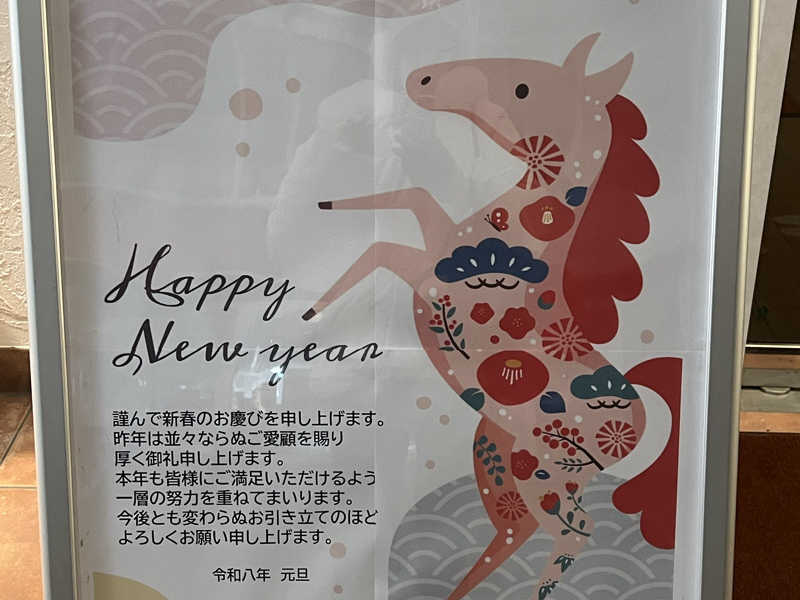 Happy
New year
謹んで新春のお慶びを申し上げます。
昨年は並々ならぬご愛顧を賜り
厚く御礼申し上げます。
本年も皆様にご満足いただけるよう
一層の努力を重ねてまいります。
今後とも変わらぬお引き立てのほど
よろしくお願い申し上げます。
令和八年 元旦